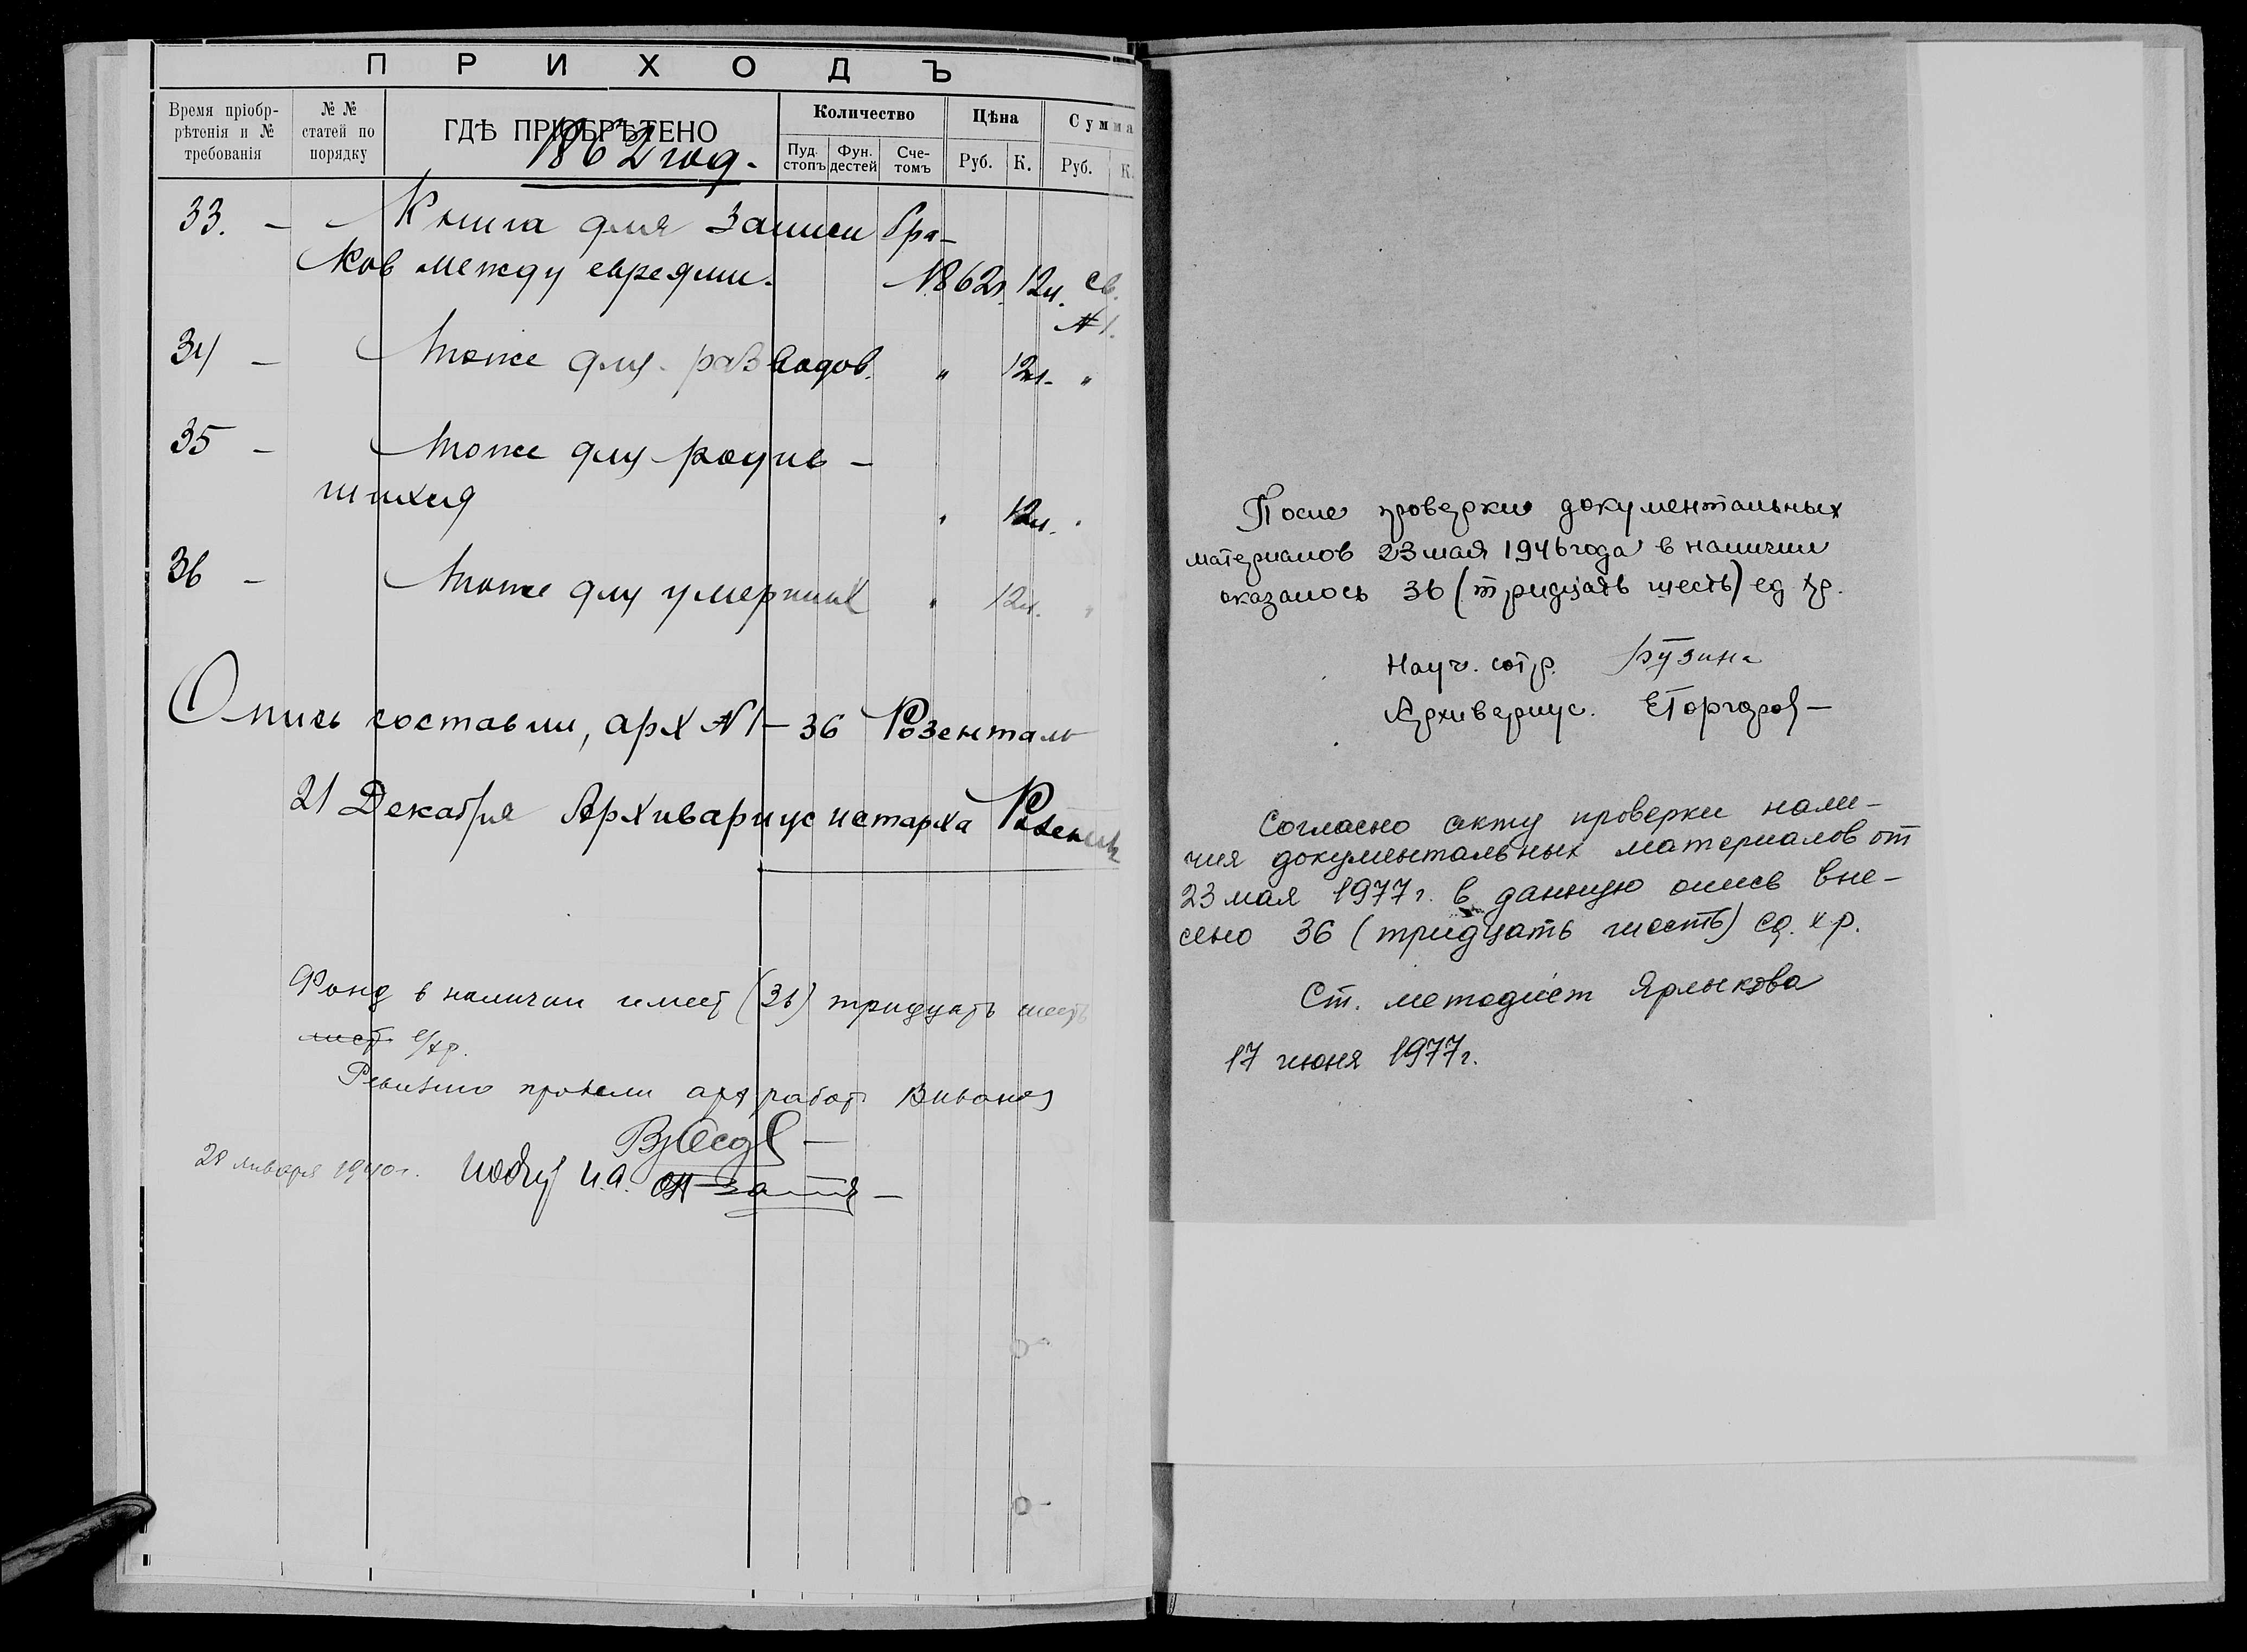 ПРИХОДЪ
Время пріобр-
рѣтенія и №
требованія
№ №
статей по
порядку
ГДѢ ПРІОБРѢТЕНО
Количество
Пуд.
стопъ
Фун.
дестей
Сче-
томъ
Цѣна
Руб. К.
Сумма
Руб. К.
1862 год.
33. — Книга для записи бра-
ков между евреями. 1862г. 12л. св.
№ 1.
34 — Тоже для разводов. " 12л. "
35 — Тоже для родив-
шихся " 12л. "
36 — Тоже для умерших " 12л. "
Опись составил, арх № 1-36 Розенталь
21 Декабря Архивариус истарха
Фонд в наличии имеет (36) тридцать шесть
лист е/хр.
Ревизию провели арх работ
28 января 1940г.
После проверки документальных
материалов 23 мая 1946 года в наличии
оказалось 36 (тридцать шесть) ед. хр.
Науч. сотр. Бузина
Архивариус.
Согласно акту проверки нали-
чия документальных материалов от
23 мая 1977г. в данную опись вне-
сено 36 (тридцать шесть) ед. хр.
Ст. методист Ярлыкова
17 июня 1977г.